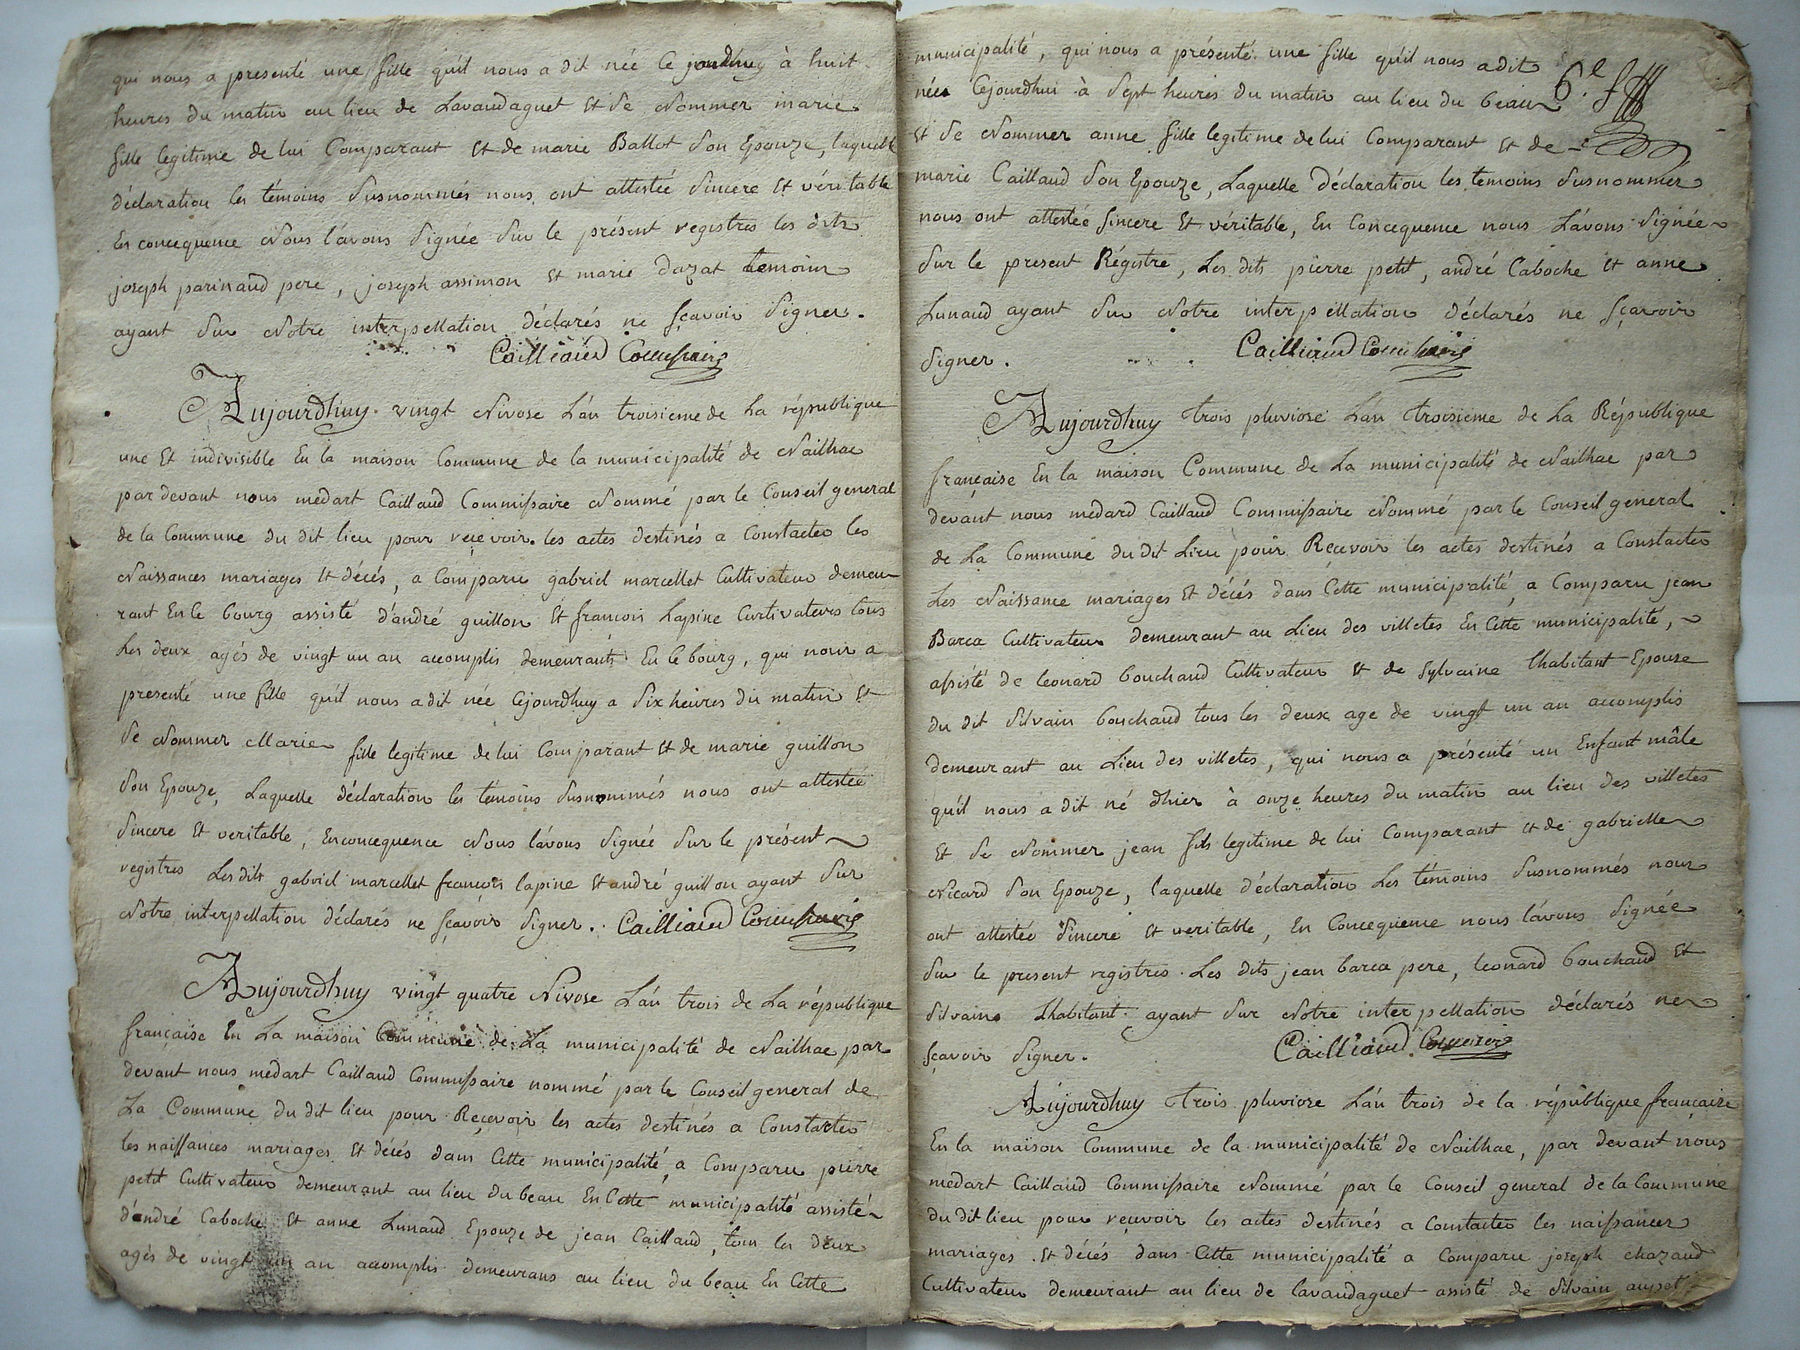 qui nous a presenté une fille qu'il nous a dit née le jourdhuy à huit
heures du matin au lieu de Lavaudaguet Et de Nommer marie
fille legitime de lui Comparant Et de marie Ballot Son Epouze, laquelle
déclaration les témoins Susnommés nous ont attestée Sincere Et véritable
En concequence Nous l'avons Signée Sur le présent registres les dits
joseph parinaud pere, joseph assimon Et marie dazat temoins
ayant Sur Notre interpellation déclarés ne sçavoir Signer.
Cailliaud Commissaire
Aujourdhuy vingt Nivose L'an troisieme de La république
une Et indivisible En la maison Commune de la municipalité de Nailhac
par devant nous medart Caillaud Commissaire Nommé par le Conseil general
de la Commune du dit lieu pour reçevoir les actes destinés a Constacter les
Naissances mariages Et décés, a Comparu gabriel marcellet Cultivateur demeu-
rant En le bourg assisté d'andré guillon Et francois Lapine Curtivateurs tous
Les deux agés de vingt un an accomplis demeurants En le bourg, qui nous a
presenté une fille qu'il nous a dit née Cejourdhuy a Six heures du matin Et
Se Nommer Marie fille legitime de lui Comparant Et de marie guillon
Son Epouze, Laquelle déclaration les témoins Susnommés nous ont attestée
Sincere Et veritable, En concequence Nous l'avons Signée Sur le présent
registres Les dits gabriel marcellet francois lapine Et andré guillon ayant Sur
Notre interpellation déclarés ne sçavoir Signer. Cailliaud Commissaire
Aujourdhuy vingt quatre Nivose L'an trois de La république
française En La maison Commune de La municipalité de Nailhac par
devant nous medart Caillaud Commissaire nommé par le Conseil general de
La Commune du dit lieu pour Reçevoir les actes destinés a Constacter
les naissances mariages Et décés dans Cette municipalité, a Comparu pierre
petit Cultivateur demeurant au lieu du beau En Cette municipalité assisté
d'andré Caboche Et anne Lunaud Epouze de jean Caillaud, tous les deux
agés de vingt un an accomplis demeurans au lieu du beau En Cette
municipalité, qui nous a présenté une fille qu'il nous a dit
née Cejourdhui à Sept heures du matin au lieu du beau 6.e f
Et Se Nommer anne fille legitime de lui Comparant Et de
marie Caillaud Son Epouze, Laquelle déclaration les témoins Susnommer
nous ont attestée Sincere Et véritable, En Concequence nous L'avons Signée
Sur le present Régistre, Les dits pierre petit, andré Caboche Et anne
Lunaud ayant Sur Notre interpellation déclarés ne sçavoir
Signer. Cailliaud Commissaire
Aujourdhuy trois pluviose L'an troisieme de La République
française En la maison Commune de La municipalité de Nailhac par
devant nous médard Caillaud Commissaire Nommé par le Conseil general
de La Commune du dit Lieu pour Reçevoir les actes destinés a Constacter
Les Naissance mariages Et décés dans Cette municipalité, a Comparu jean
Barca Cultivateur demeurant au Lieu des villetes En Cette municipalité,
assisté de leonard bouchaud Cultivateur Et de Sylvaine Lhabitant Epouse
du dit Silvain bouchaud tous les deux age de vingt un an accomplis
demeurant au Lieu des villetes, qui nous a présenté un Enfant mâle
qu'il nous a dit né dhier à onze heures du matin au lieu des villetes
Et Se Nommer jean fils legitime de lui Comparant et de gabrielle
Nicard Son Epouze, laquelle déclaration Les témoins Susnommés nous
ont attestée Sincere Et veritable, En Concequence nous l'avons Signée
Sur le present registres. Les dits jean barca pere, leonard bouchaud Et
Silvaine Lhabitant ayant Sur Notre interpellation déclarés ne
sçavoir Signer. Cailliaud Commissaire
Aujourdhuy trois pluviose L'an trois de la république française
En la maison Commune de la municipalité de Nailhac, par devant nous
médart Caillaud Commissaire Nommé par le Conseil general de la Commune
du dit lieu pour reçevoir les actes destinés a Constacter les naissances
mariages Et décés dans Cette municipalité a Comparu joseph chazaud
Cultivateur demeurant au lieu de lavaudaguet assisté de Silvain